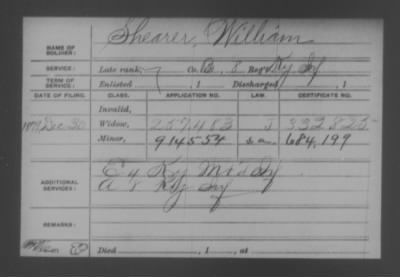 Shearer, William
NAME OF SOLDIER:
SERVICE: Late rank, Co. B, 8 Reg't Ky Inf
TERM OF SERVICE: Enlisted , 1 Discharged , 1
DATE OF FILING. CLASS. APPLICATION NO. LAW. CERTIFICATE NO.
Invalid,
Dec 30 Widow, 257,483 J 332,825
Minor, 914554 684,199
ADDITIONAL SERVICES: Ky
A 8 Ky Inf
REMARKS:
Died , 1 , at